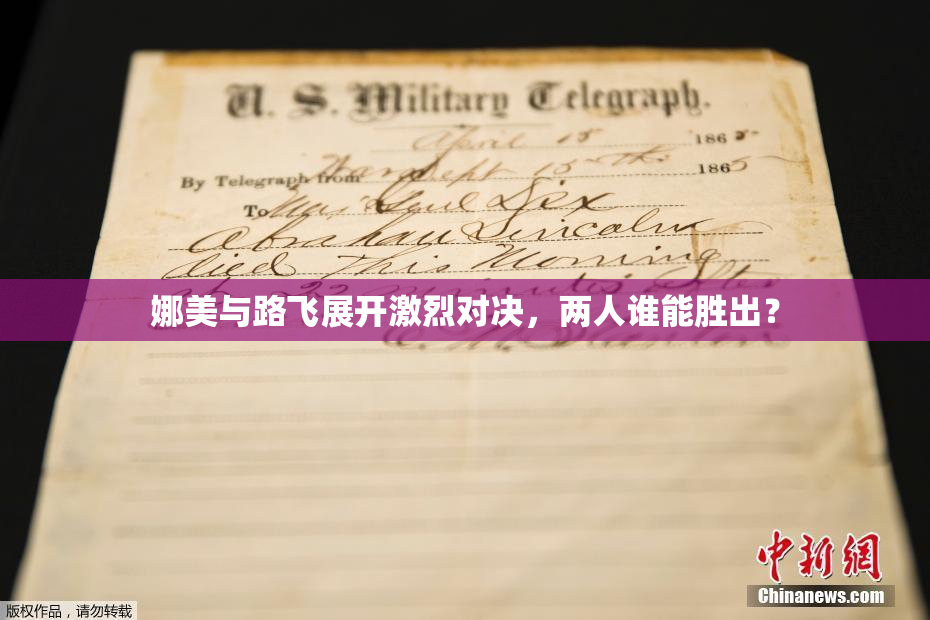 U. S. Military Telegraph.
April 15 1865
By Telegraph from War Dept 15th 1865
To Maj Genl Dix
Abraham Lincoln
died This Morning
at 22 minutes after
娜美与路飞展开激烈对决，两人谁能胜出？
E. M. Stanton
中新网
Chinanews.com
版权作品，请勿转载